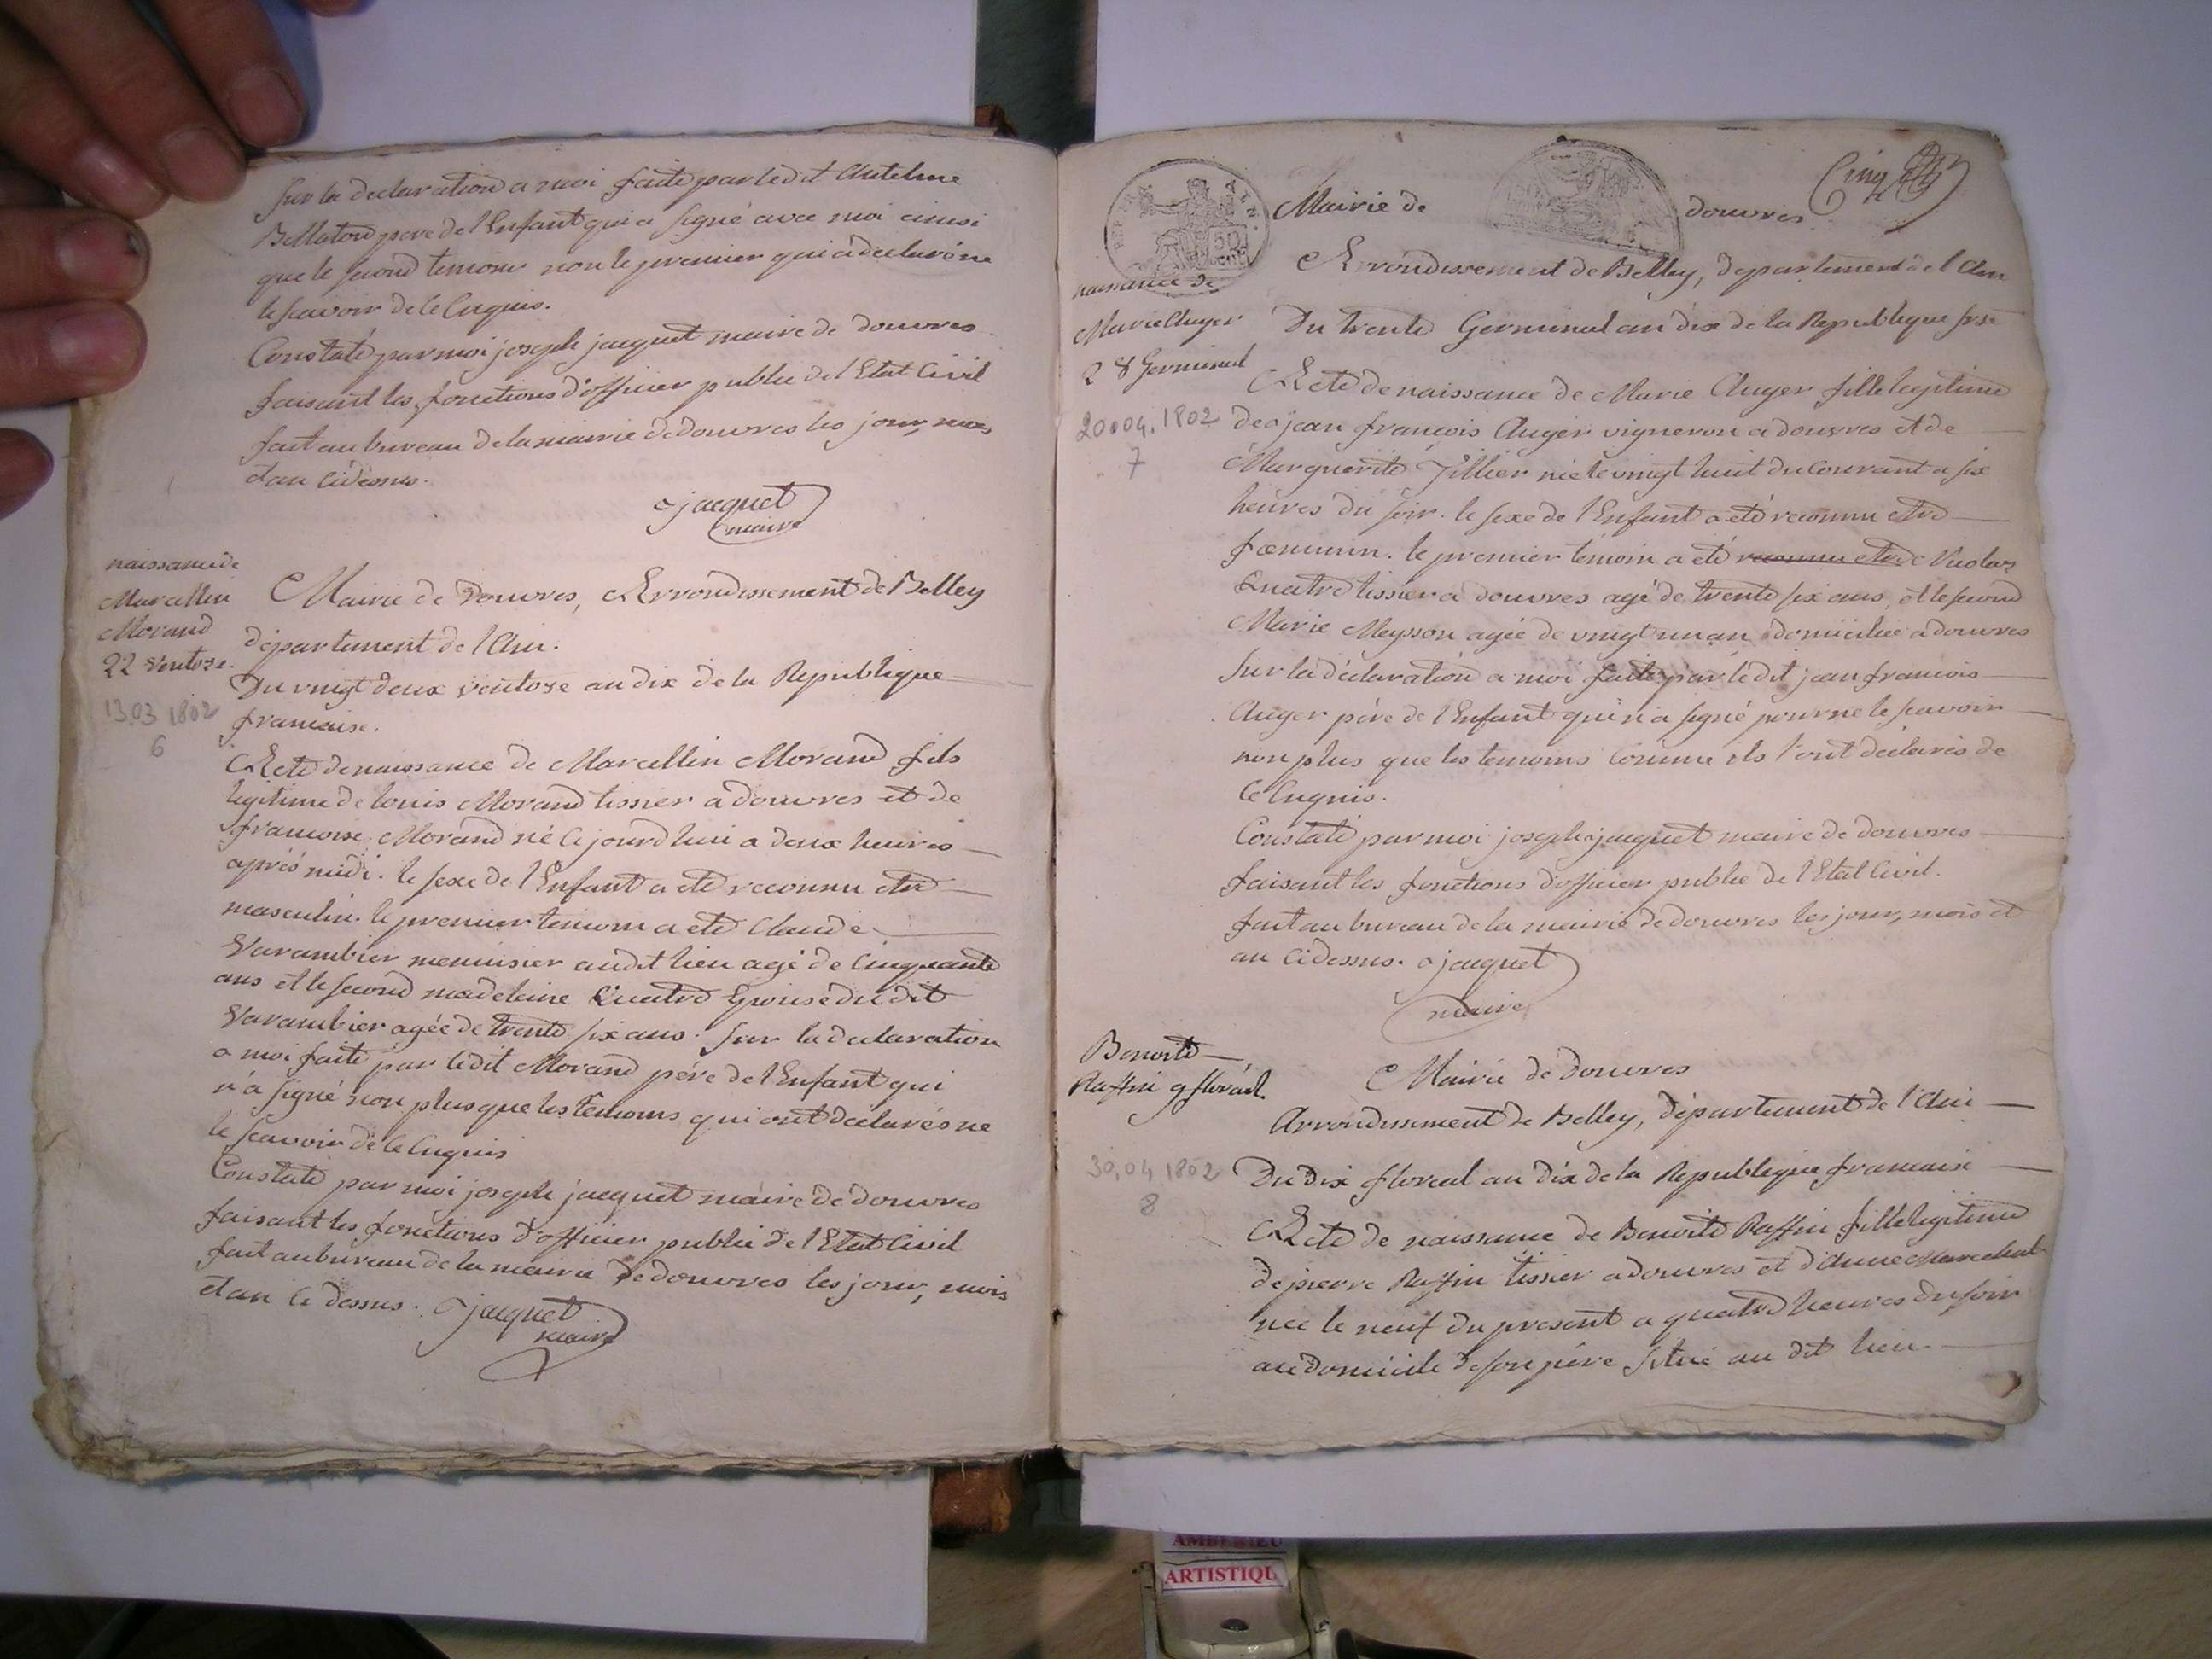 Sur la declaration a moi faite par ledit Antelme
Bellaton pere de l'Enfant qui a signé avec moi ainsi
que le second temoin non le premier qui a declaré ne
le scavoir de ce Enquis.
Constaté par moi joseph jacquet maire de douvres
faisant les fonctions d'officier public de l'Etat Civil
fait au bureau de la mairie de douvres les jour, mois
et an cidessus.
jacquet
maire
naissance de
Marcellin
Morand
22 Ventose.
13.03 1802
6
Mairie de Douvres, Arrondissement de Belley
département de l'Ain.
Du vingt deux ventose an dix de la Republique
francaise.
Acte de naissance de Marcellin Morand fils
legitime de louis Morand tissier a douvres et de
francoise Morand né cejourd'hui a deux heures
après midi. le sexe de l'Enfant a eté reconnu etre
masculin. le premier temoin a eté Claude
Varambier menuisier audit lieu agé de Cinquante
ans et le second madeleine Quatre Epouse du dit
Varambier agée de trente six ans. Sur la declaration
a moi faite par ledit Morand pére de l'Enfant qui
n'a signé non plus que les témoins qui ont declarés ne
le scavoir de ce Enquis
Constaté par moi joseph jacquet maire de douvres
faisant les fonctions d'officier public de l'Etat Civil
fait au bureau de la mairie de douvres les jour, mois
et an ci dessus. jacquet
maire
Cinq
Mairie de douvres
REP FRA
50
CENT
Arrondissement de Belley, departement de l'Ain
naissance de
Marie Auger
28 Germinal
20.04.1802
7
Du trente Germinal an dix de la Republique frse
Acte de naissance de Marie Auger fille legitime
de jean francois Auger vigneron a douvres et de
Marguerite Tillier née le vingt huit du courant a six
heures du soir. le sexe de l'Enfant a eté reconnu etre
fœminin. le premier témoin a eté reconnu etre Nicolas
Quatre tissier a douvres agé de trente six ans, et le second
Marie Meysson agée de vingt un an domiciliee a douvres
Sur la déclaration a moi faite par ledit jean francois
Auger pére de l'Enfant qui n'a signé pour ne le scavoir
non plus que les temoins comme ils l'ont déclarés de
ce Enquis.
Constaté par moi joseph jacquet maire de douvres
faisant les fonctions d'officier public de l'Etat Civil.
fait au bureau de la mairie de douvres les jour, mois et
an cidessus. jacquet
maire
Benoite
Raffin 9 floréal.
30.04 1802
8
Mairie de Douvres
Arrondissement de Belley, département de l'Ain
Du Dix floreal an dix de la Republique francaise
Acte de naissance de Benoite Raffin fille legitime
de pierre Raffin tissier a douvres et d'Anne Marechal
née le neuf du present a quatre heures du soir
au domicile de son pére situé au dit lieu.
ARTISTIQU